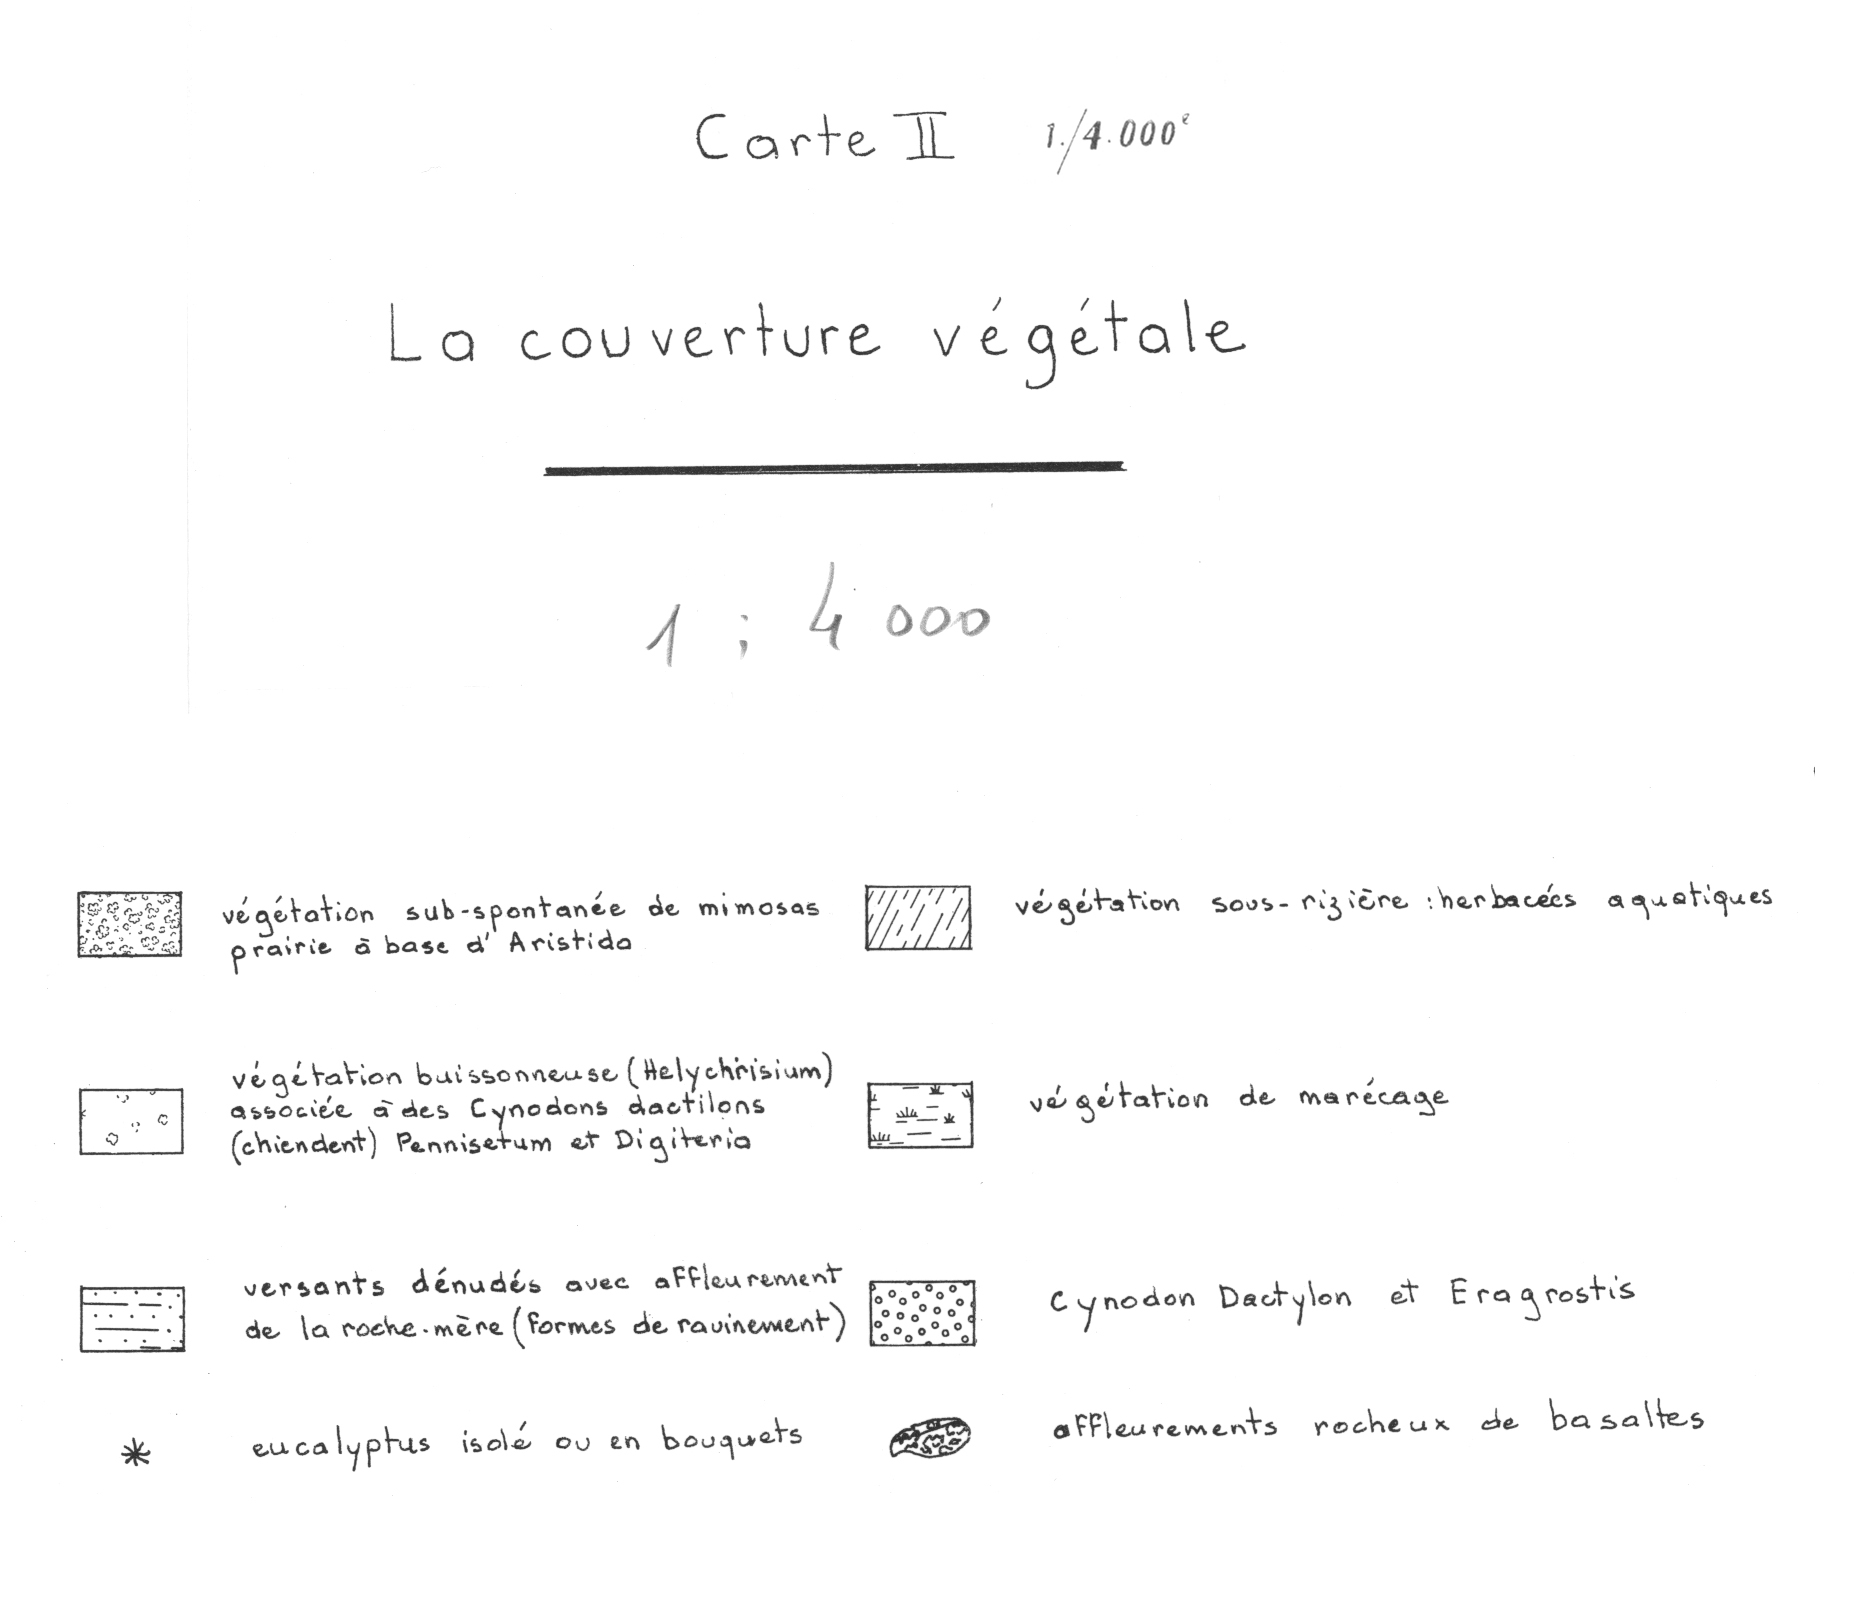 Carte II 1./4.000e
La couverture végétale
1 : 4 000
végétation sub-spontanée de mimosas
prairie à base d'Aristida
végétation sous-rizière : herbacées aquatiques
végétation buissonneuse (Helychrisium)
associée à des Cynodons dactilons
(chiendent) Pennisetum et Digiteria
végétation de marécage
versants dénudés avec affleurement
de la roche-mère (formes de ravinement)
Cynodon Dactylon et Eragrostis
eucalyptus isolé ou en bouquets
affleurements rocheux de basaltes